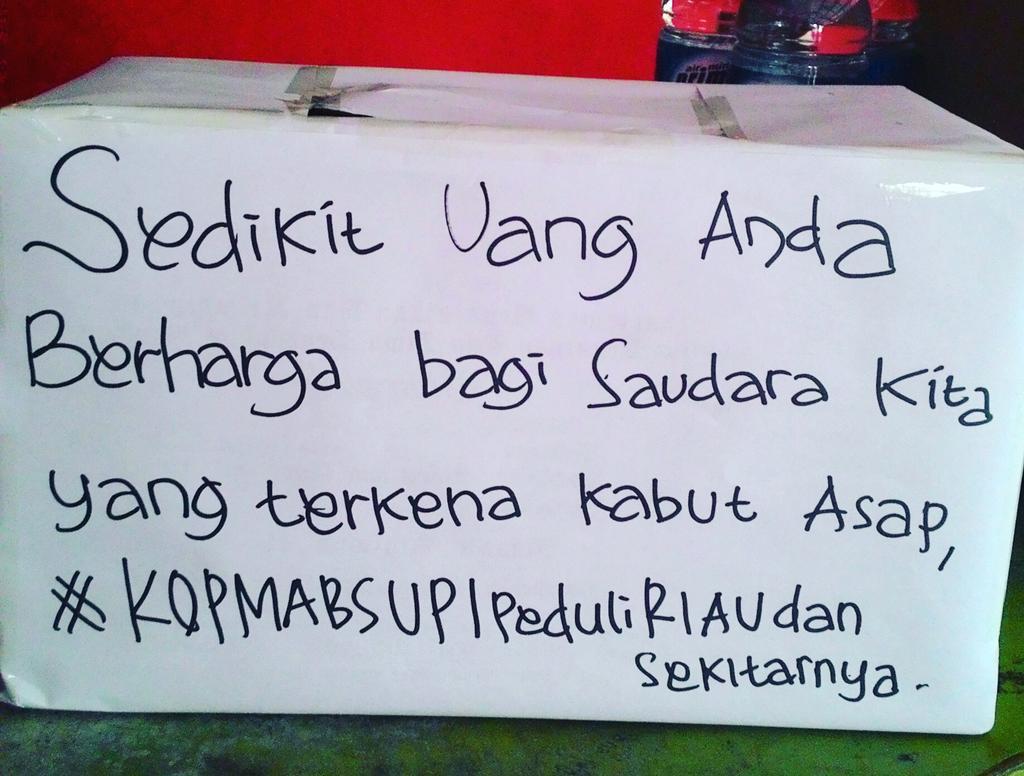 Sedikit Uang Anda
Berharga bagi Saudara Kita
yang terkena kabut Asap,
#KOPMABSUPIPeduliRIAUdan
sekitarnya.